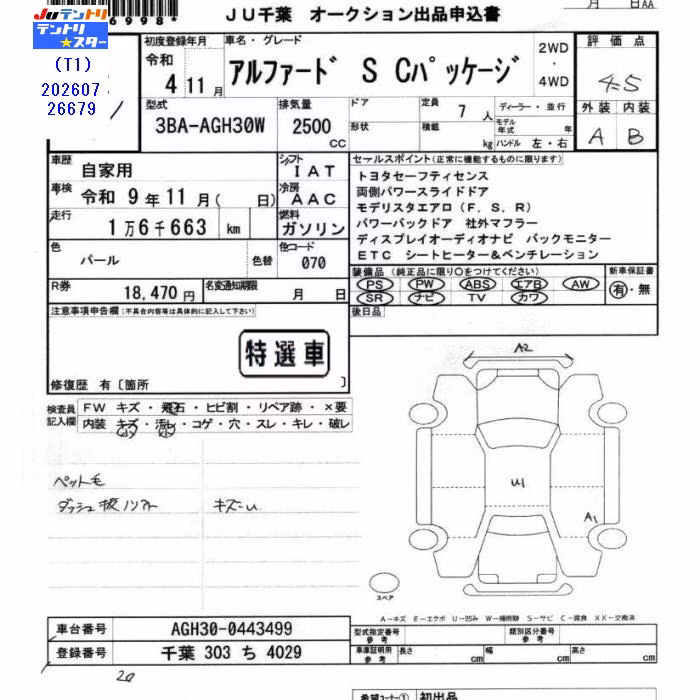 JU テントリ
テントリ★スター
(T1)
202607
26679
6998*
JU千葉 オークション出品申込書
月 日AA
初度登録年月
令和
4 11月
車名・グレード
アルファード S Cパッケージ
2WD
・
4WD
評価点
4.5
外装 内装
A B
型式
3BA-AGH30W
排気量
2500
CC
ドア
形状
定員
7人
積載
kg
ディーラー・並行
モデル年式 年
ハンドル 左・右
車歴
自家用
シフト
IAT
車検
令和 9年 11月( 日)
冷房
AAC
走行
1万6千663 km
燃料
ガソリン
色
パール
色替
色コード
070
R券
18,470円
名変通知期限
月 日
セールスポイント(正常に機能するものに限ります)
トヨタセーフティセンス
両側パワースライドドア
モデリスタエアロ(F、S、R)
パワーバックドア 社外マフラー
ディスプレイオーディオナビ バックモニター
ETC シートヒーター&ベンチレーション
装備品(純正品に限り〇をつけてください)
PS PW ABS エアB AW
SR ナビ TV カワ
新車保証書
有・無
後日品
注意事項申告欄(不具合内容等は具体的に記入して下さい)
特選車
修復歴 有〔箇所 〕
検査員
記入欄
FW キズ・飛石・ヒビ割・リペア跡・×要
内装 キズ・汚レ・コゲ・穴・スレ・キレ・破レ
ペット毛
ダッシュ板
キズ
A2
U1
A1
スペア
A-キズ E-エクボ U-凹み W-補修跡 S-サビ C-腐食 XX-交換済
車台番号
AGH30-0443499
登録番号
千葉 303 ち 4029
型式指定番号
参考
類別区分番号
参考
車庫証明用
参考
長さ cm
幅 cm
高さ cm
希望コーナー① 初出品